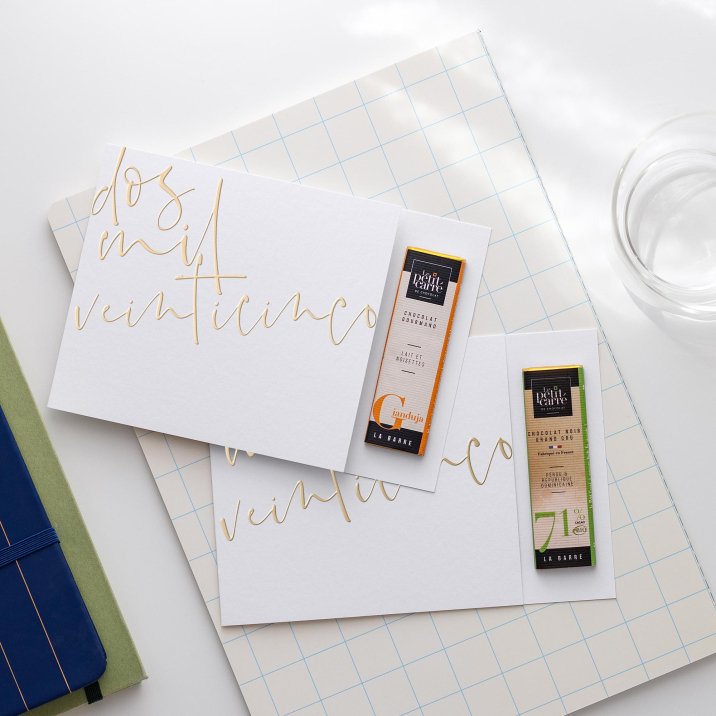 dos
mil
veinticinco
Le
petit
carré
DE CHOCOLAT
CHOCOLAT
GOURMAND
LAIT ET
NOISETTES
Gianduja
LA BARRE
veinticinco
Le
petit
carré
DE CHOCOLAT
CHOCOLAT NOIR
GRAND CRU
Fabriqué en France
PÉROU &
RÉPUBLIQUE
DOMINICAINE
71%
CACAO
LA BARRE